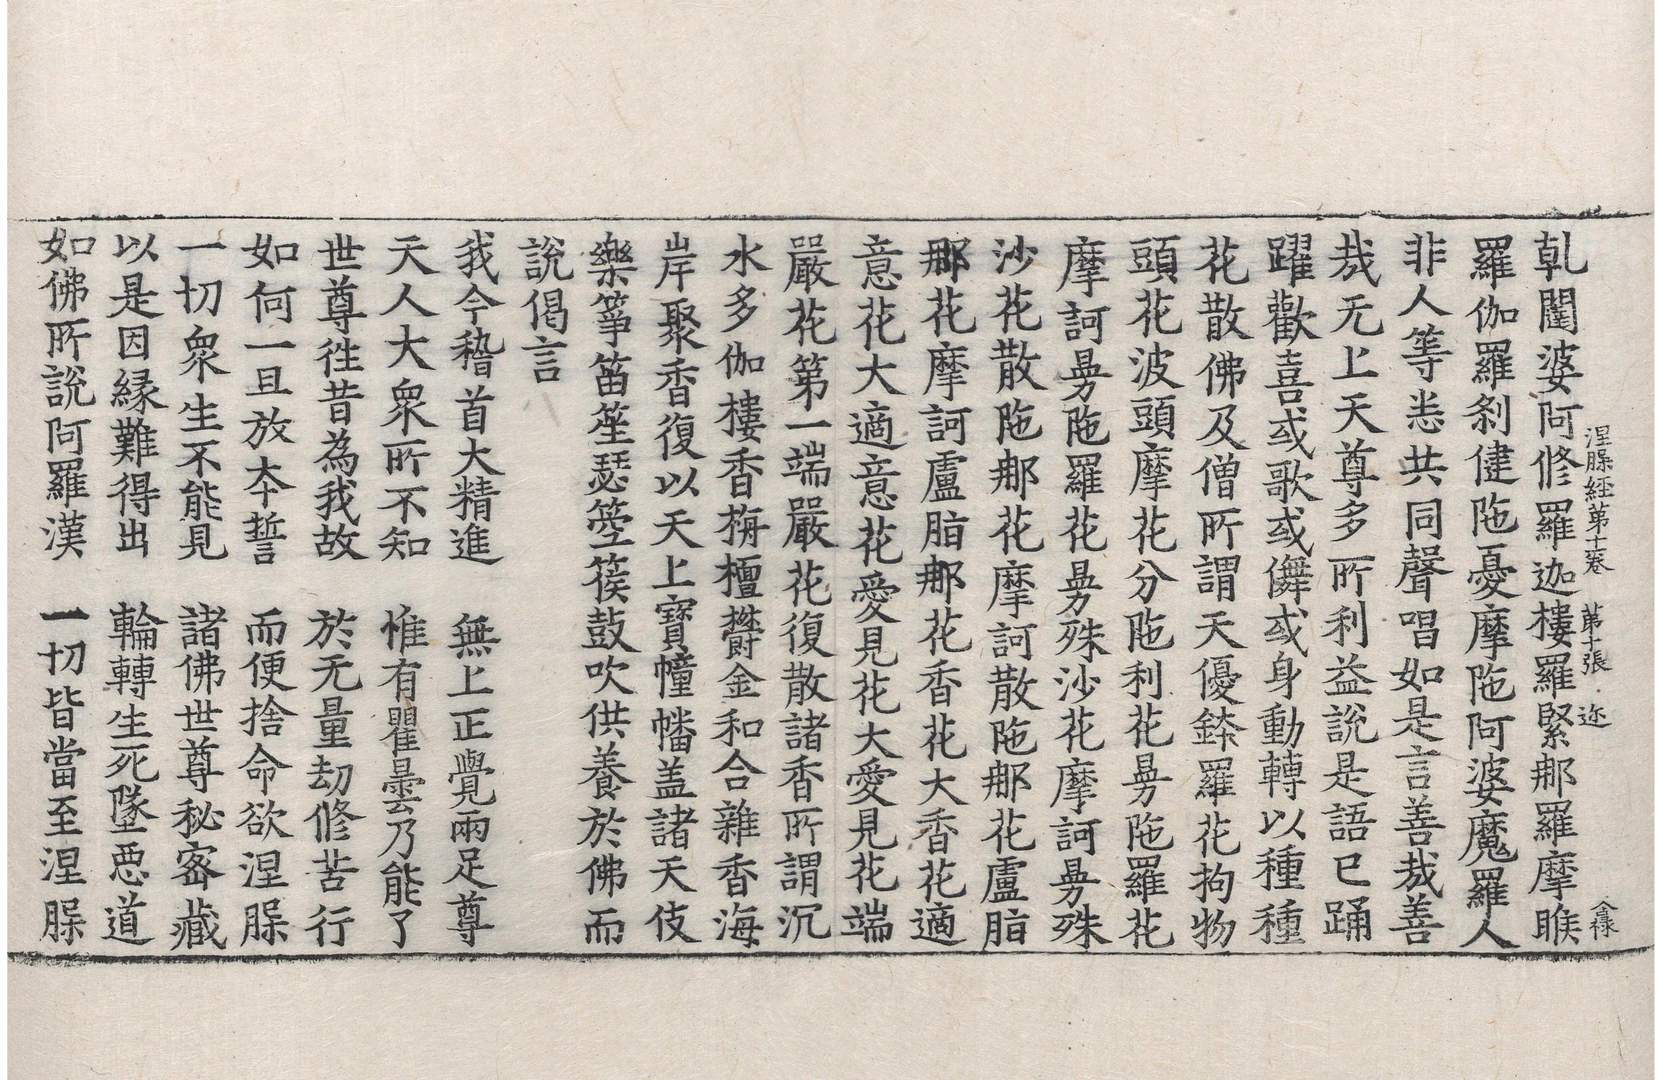 乹闥婆阿修羅迦樓羅緊那羅摩睺
涅槃經第十卷 第十張 迩
羅伽羅刹健陁憂摩陁阿婆魔羅人
非人等悉共同聲唱如是言善哉善
哉无上天尊多所利益說是語已踊
躍歡喜或歌或儛或身動轉以種種
花散佛及僧所謂天優鉢羅花拘物
頭花波頭摩花分陁利花曼陁羅花
摩訶曼陁羅花曼殊沙花摩訶曼殊
沙花散陁那花摩訶散陁那花盧脂
那花摩訶盧脂那花香花大香花適
意花大適意花愛見花大愛見花端
嚴花第一端嚴花復散諸香所謂沉
水多伽樓香栴檀欝金和合雜香海
岸聚香復以天上寶幢幡盖諸天伎
樂箏笛笙瑟箜篌鼓吹供養於佛而
說偈言
我今稽首大精進 無上正覺兩足尊
天人大衆所不知 惟有瞿曇乃能了
世尊徃昔為我故 於无量劫修苦行
如何一旦放本誓 而便捨命欲涅槃
一切衆生不能見 諸佛世尊秘密藏
以是因縁難得出 輪轉生死墜惡道
如佛所說阿羅漢 一切皆當至涅槃